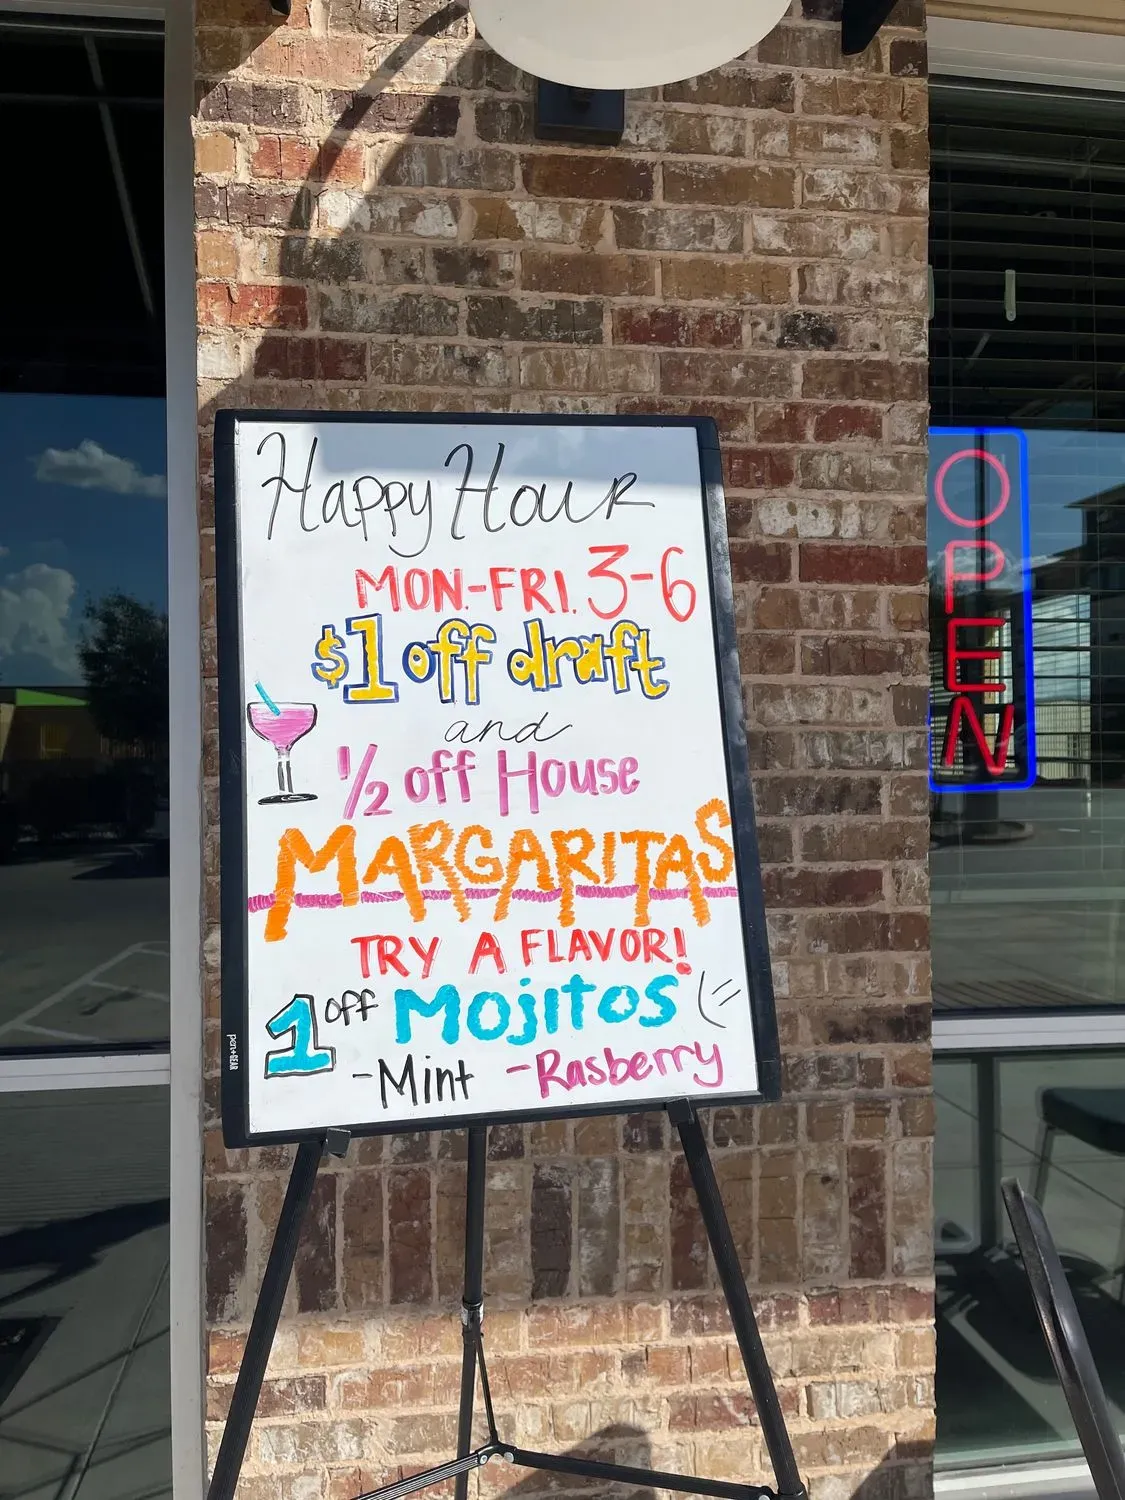 Happy Hour
MON.-FRI. 3-6
$1 off draft
and
1/2 off House
MARGARITAS
TRY A FLAVOR!
1 off Mojitos
-Mint -Rasberry
OPEN